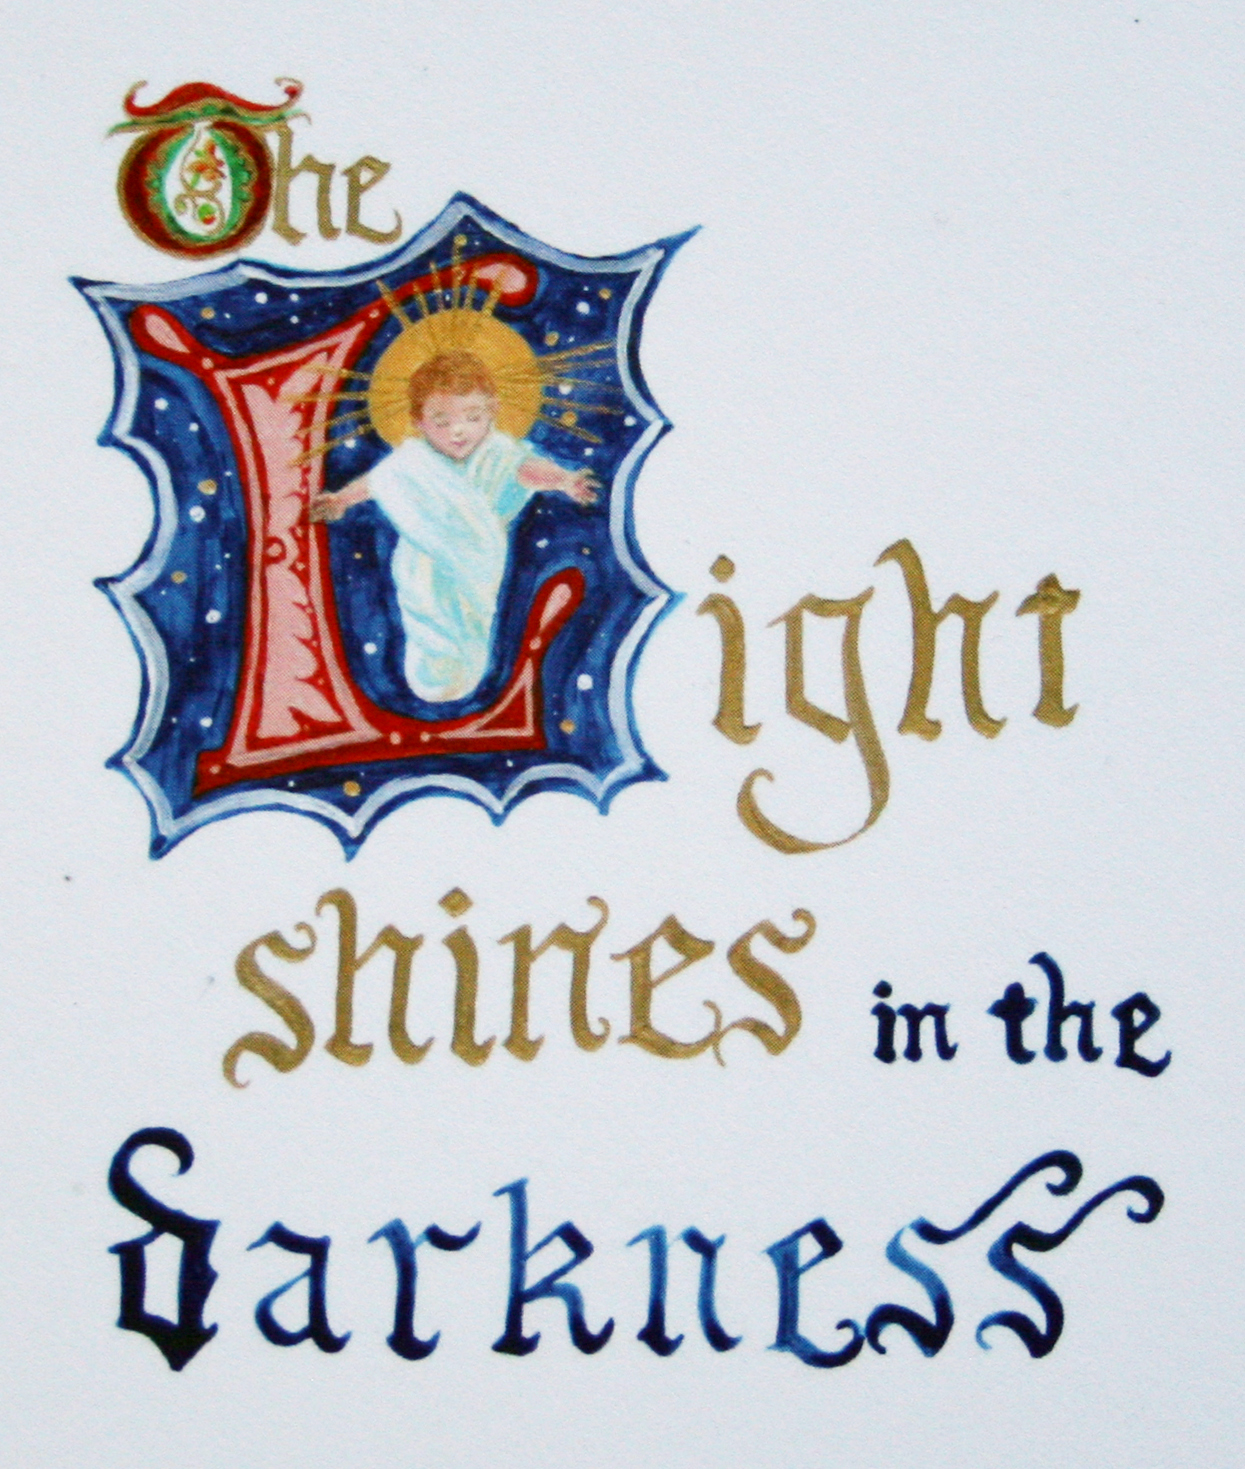 The
Light
shines in the
darkness